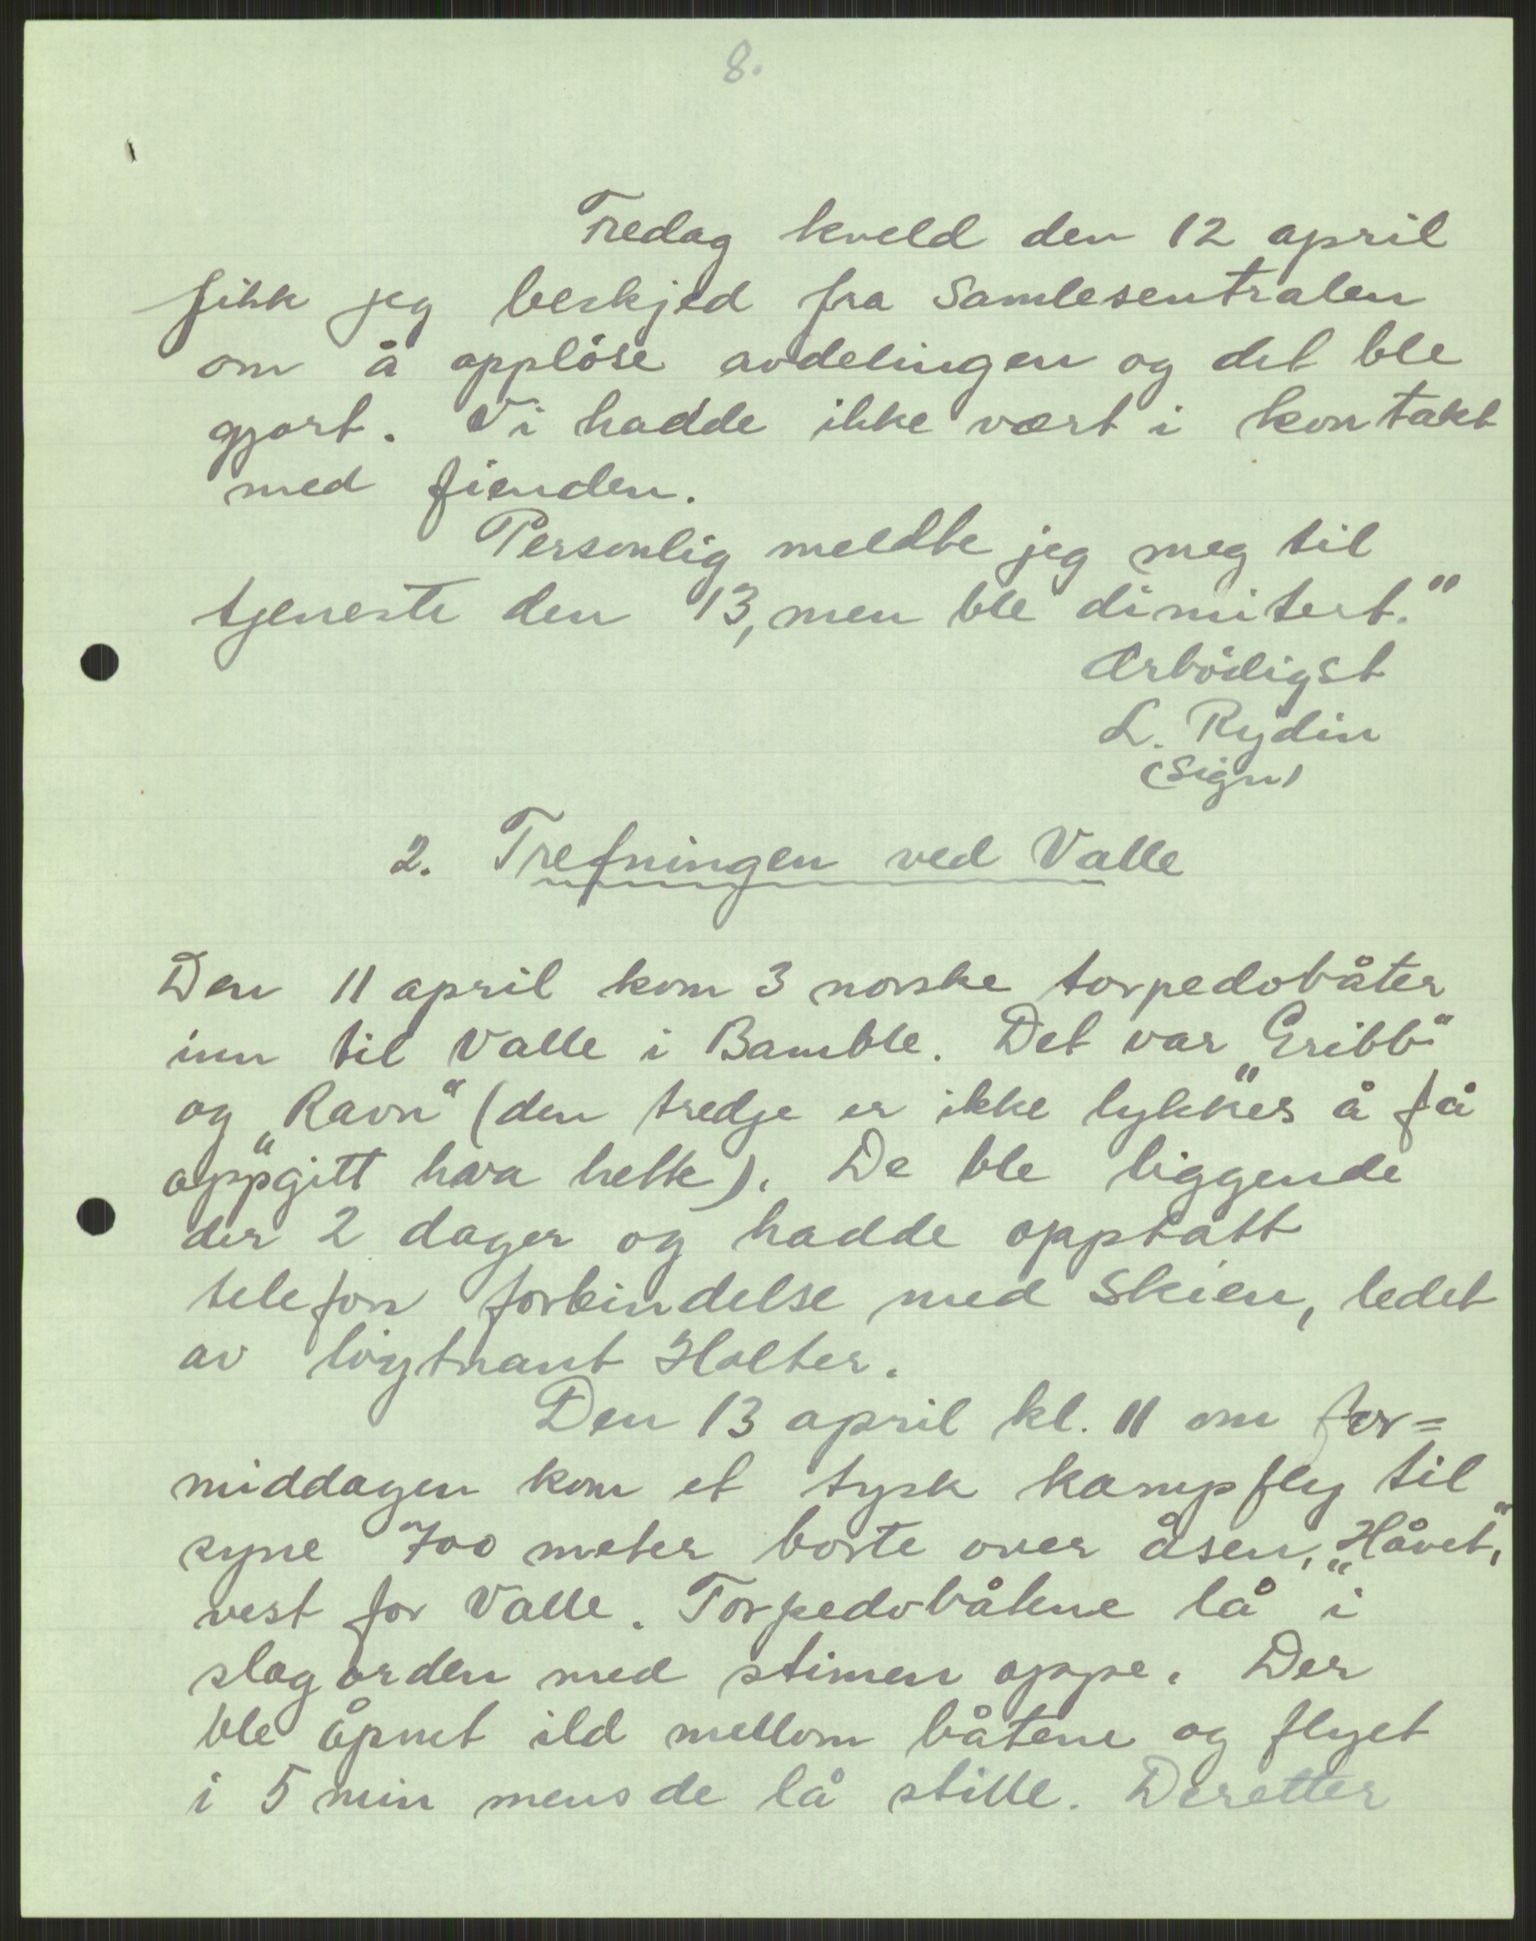 8.
Fredag kveld den 12 april
fikk jeg beskjed fra Samlesentralen
om å oppløse avdelingen og det ble
gjort. Vi hadde ikke vært i kontakt
med fienden.
Personlig meldte jeg meg til
tjeneste den 13, men ble dimitert."
Ærbødigst
L. Rydin
(Sign)
2. Trefningen ved Valle
Den 11 april kom 3 norske torpedobåter
inn til Valle i Bamble. Det var „Gribb"
og „Ravn" (den tredje er ikke lykkes å få
oppgitt hva hette). De ble liggende
der 2 dager og hadde opptatt
telefon forbindelse med Skien, ledet
av løytnant Holter.
Den 13 april kl. 11 om for=
middagen kom et tysk kampfly til
syne 700 meter borte over åsen, „Håvet,"
vest for Valle. Torpedobåtene lå i
slagorden med stimen oppe. Der
ble åpnet ild mellom båtene og flyet
i 5 min mens de lå stille. Deretter